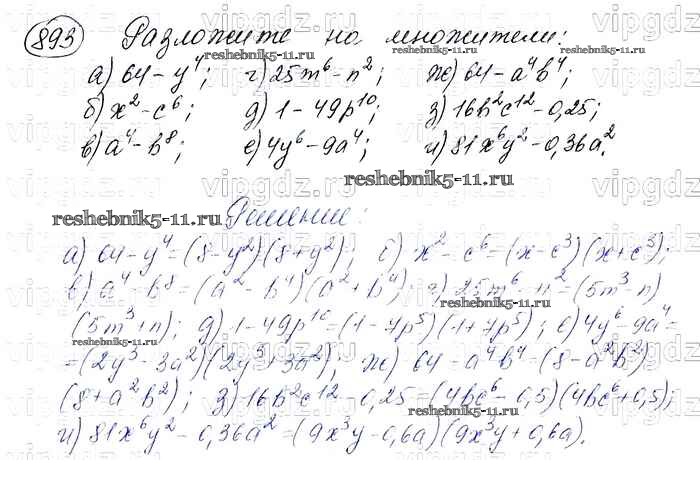 893 Разложите на множители:
а) 64 - y⁴; г) 25m⁶ - n²; ж) 64 - a⁴b⁴;
б) x² - c⁶; д) 1 - 49p¹⁰; з) 16b²c¹² - 0,25;
в) a⁴ - b⁸; е) 4y⁶ - 9a⁴; и) 81x⁶y² - 0,36a².
reshebnik5-11.ru
Решение:
а) 64 - y⁴ = (8 - y²)(8 + y²); б) x² - c⁶ = (x - c³)(x + c³);
в) a⁴ - b⁸ = (a² - b⁴)(a² + b⁴); г) 25m⁶ - n² = (5m³ - n)
(5m³ + n); д) 1 - 49p¹⁰ = (1 - 7p⁵)(1 + 7p⁵); е) 4y⁶ - 9a⁴ =
= (2y³ - 3a²)(2y³ + 3a²); ж) 64 - a⁴b⁴ = (8 - a²b²)
(8 + a²b²); з) 16b²c¹² - 0,25 = (4bc⁶ - 0,5)(4bc⁶ + 0,5);
и) 81x⁶y² - 0,36a² = (9x³y - 0,6a)(9x³y + 0,6a).